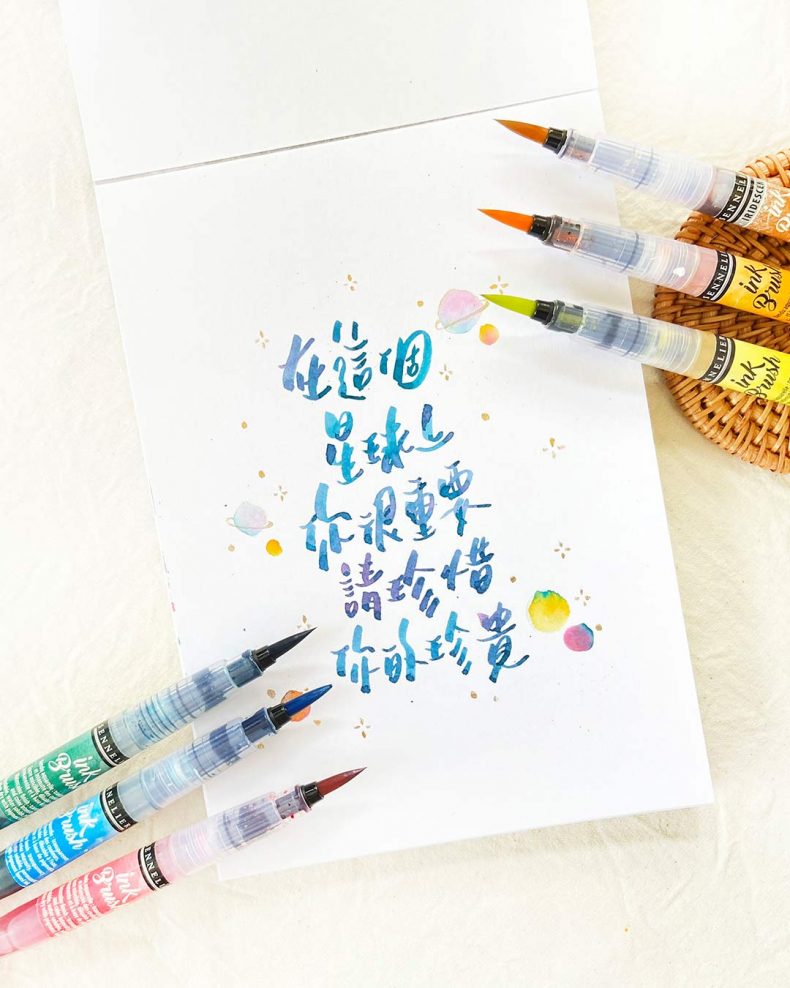 在這個
星球上
你很重要
請珍惜
你的珍貴
SENNELIER
IRIDESCENT
ink
SENNELIER
ink
Brush
SENNELIER
ink
Brush
SENNELIER
ink
Brush
SENNELIER
ink
Brush
SENNELIER
ink
Brush